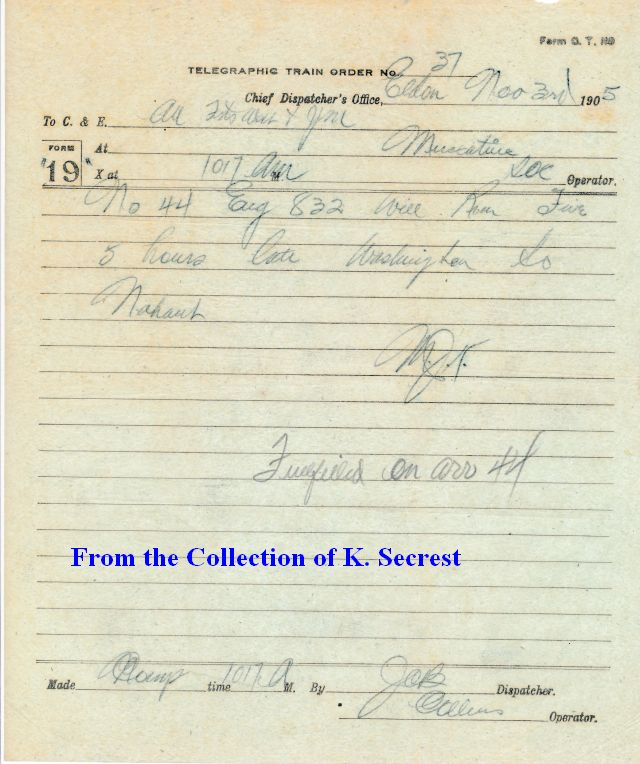 Form G. T. NO
TELEGRAPHIC TRAIN ORDER No. 37
Chief Dispatcher's Office, Eldon Nov 3rd 1905
To C. & E. All
At Muscatine
FORM
"19"
X at 1017 AM M. Operator.
No 44 Eng 832 will Run Five
5 hours late Washington to
Nahant
Fulfilled on arr 44
From the Collection of K. Secrest
Made Comp time 1017 A M. By Dispatcher.
Collins Operator.